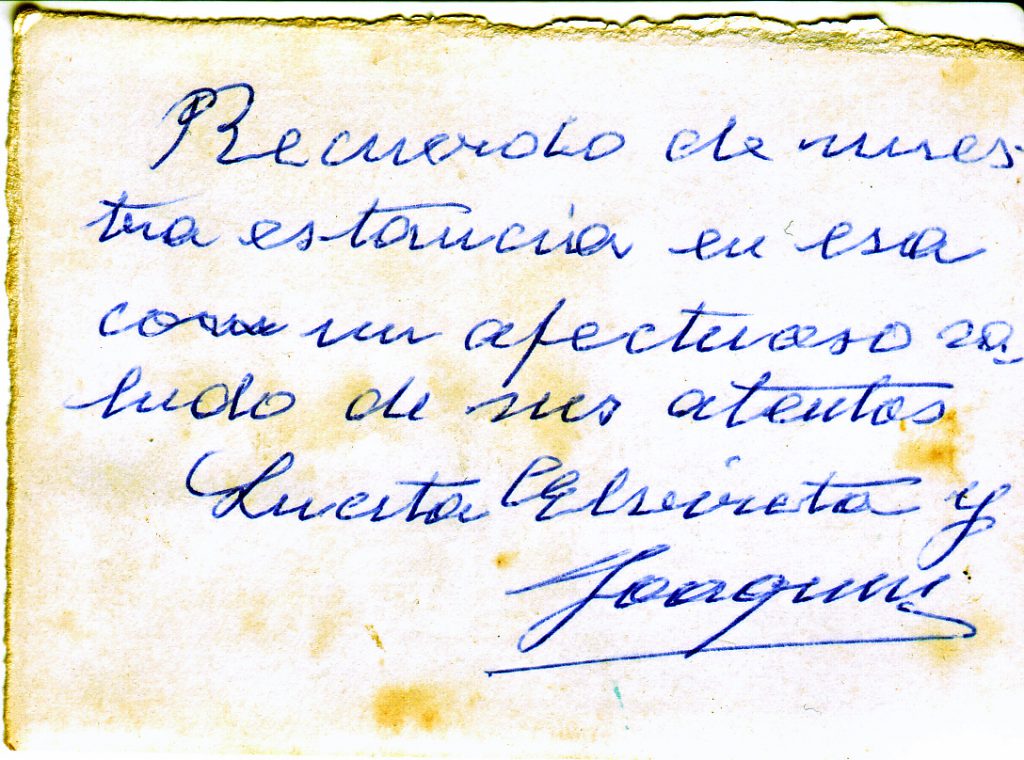 Recuerdo de nues-
tra estancia en esa
con un afectuoso sa-
ludo de sus atentos
Lucita Elvireta y
Joaquin